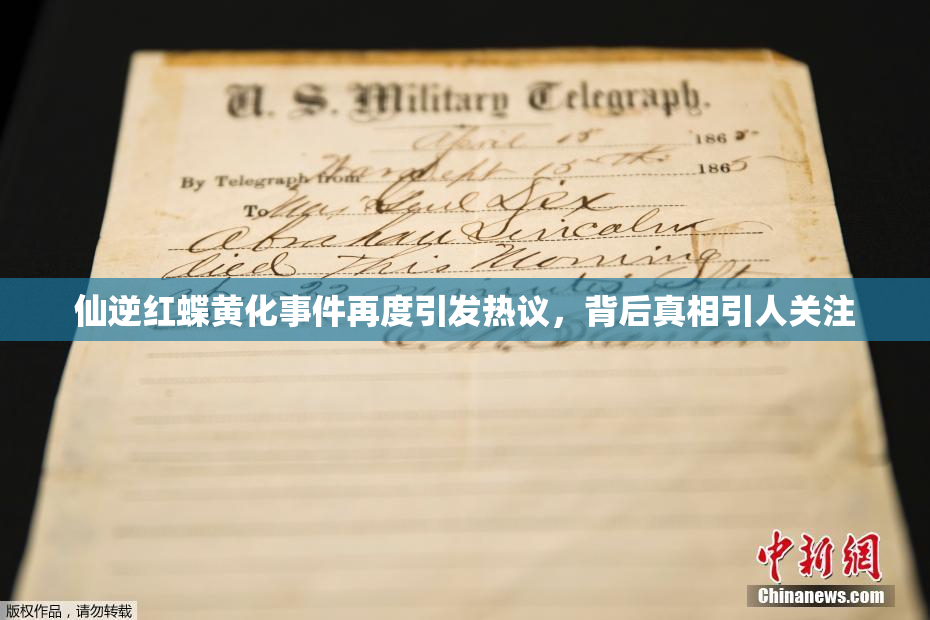 U. S. Military Telegraph.
April 15 1865
By Telegraph from War Dept 15th 1865
To Maj Genl Dix
Abraham Lincoln
died This Morning
22 minutes after
仙逆红蝶黄化事件再度引发热议，背后真相引人关注
E. M. Stanton
中新网
Chinanews.com
版权作品，请勿转载